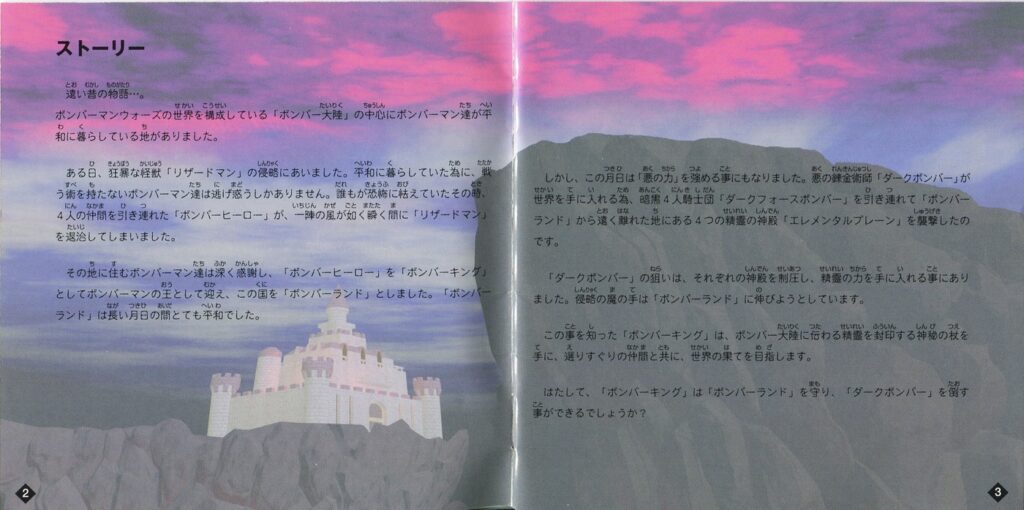 ストーリー
遠い昔の物語…。
ボンバーマンウォーズの世界を構成している「ボンバー大陸」の中心にボンバーマン達が平
和に暮らしている地がありました。
ある日、狂暴な怪獣「リザードマン」の侵略にあいました。平和に暮らしていた為に、戦
う術を持たないボンバーマン達は逃げ惑うしかありません。誰もが恐怖に怯えていたその時、
4人の仲間を引き連れた「ボンバーヒーロー」が、一陣の風が如く瞬く間に「リザードマン」
を退治してしまいました。
その地に住むボンバーマン達は深く感謝し、「ボンバーヒーロー」を「ボンバーキング」
としてボンバーマンの王として迎え、この国を「ボンバーランド」としました。「ボンバー
ランド」は長い月日の間とても平和でした。
2
しかし、この月日は「悪の力」を強める事にもなりました。悪の錬金術師「ダークボンバー」が
世界を手に入れる為、暗黒4人騎士団「ダークフォースボンバー」を引き連れて「ボンバー
ランド」から遠く離れた地にある4つの精霊の神殿「エレメンタルプレーン」を襲撃したの
です。
「ダークボンバー」の狙いは、それぞれの神殿を制圧し、精霊の力を手に入れる事にあり
ました。侵略の魔の手は「ボンバーランド」に伸びようとしています。
この事を知った「ボンバーキング」は、ボンバー大陸に伝わる精霊を封印する神秘の杖を
手に、選りすぐりの仲間と共に、世界の果てを目指します。
はたして、「ボンバーキング」は「ボンバーランド」を守り、「ダークボンバー」を倒す
事ができるでしょうか?
3